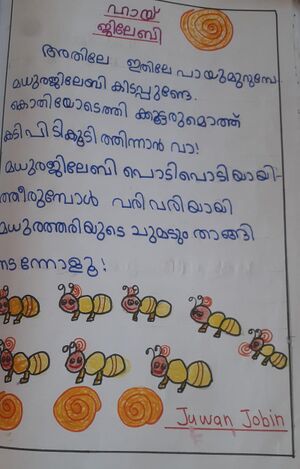 ഹായ്
ജിലേബി
അതിലേ ഇതിലേ പായുമുറുമ്പേ
മധുരജിലേബി കിടപ്പുണ്ടേ.
കൊതിയോടെത്തി ക്കൂട്ടരുമൊത്ത്
കടിപിടികൂടിത്തിന്നാൻ വാ!
മധുരജിലേബി പൊടിപൊടിയായി-
ത്തീരുമ്പോൾ വരിവരിയായി
മധുരത്തരിയുടെ ചുമടും താങ്ങി
നടന്നോളൂ!
Juwan Jobin